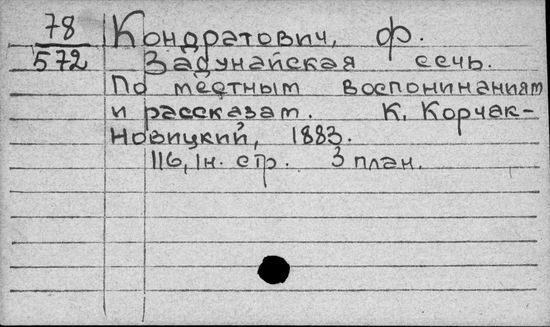 78
572
Кондратович, ф.
Задунайская сечь.
По местным воспоминаниям
и рассказам. К. Корчак-
Новицкий, 1883.
116, 1н. стр. 3 план.